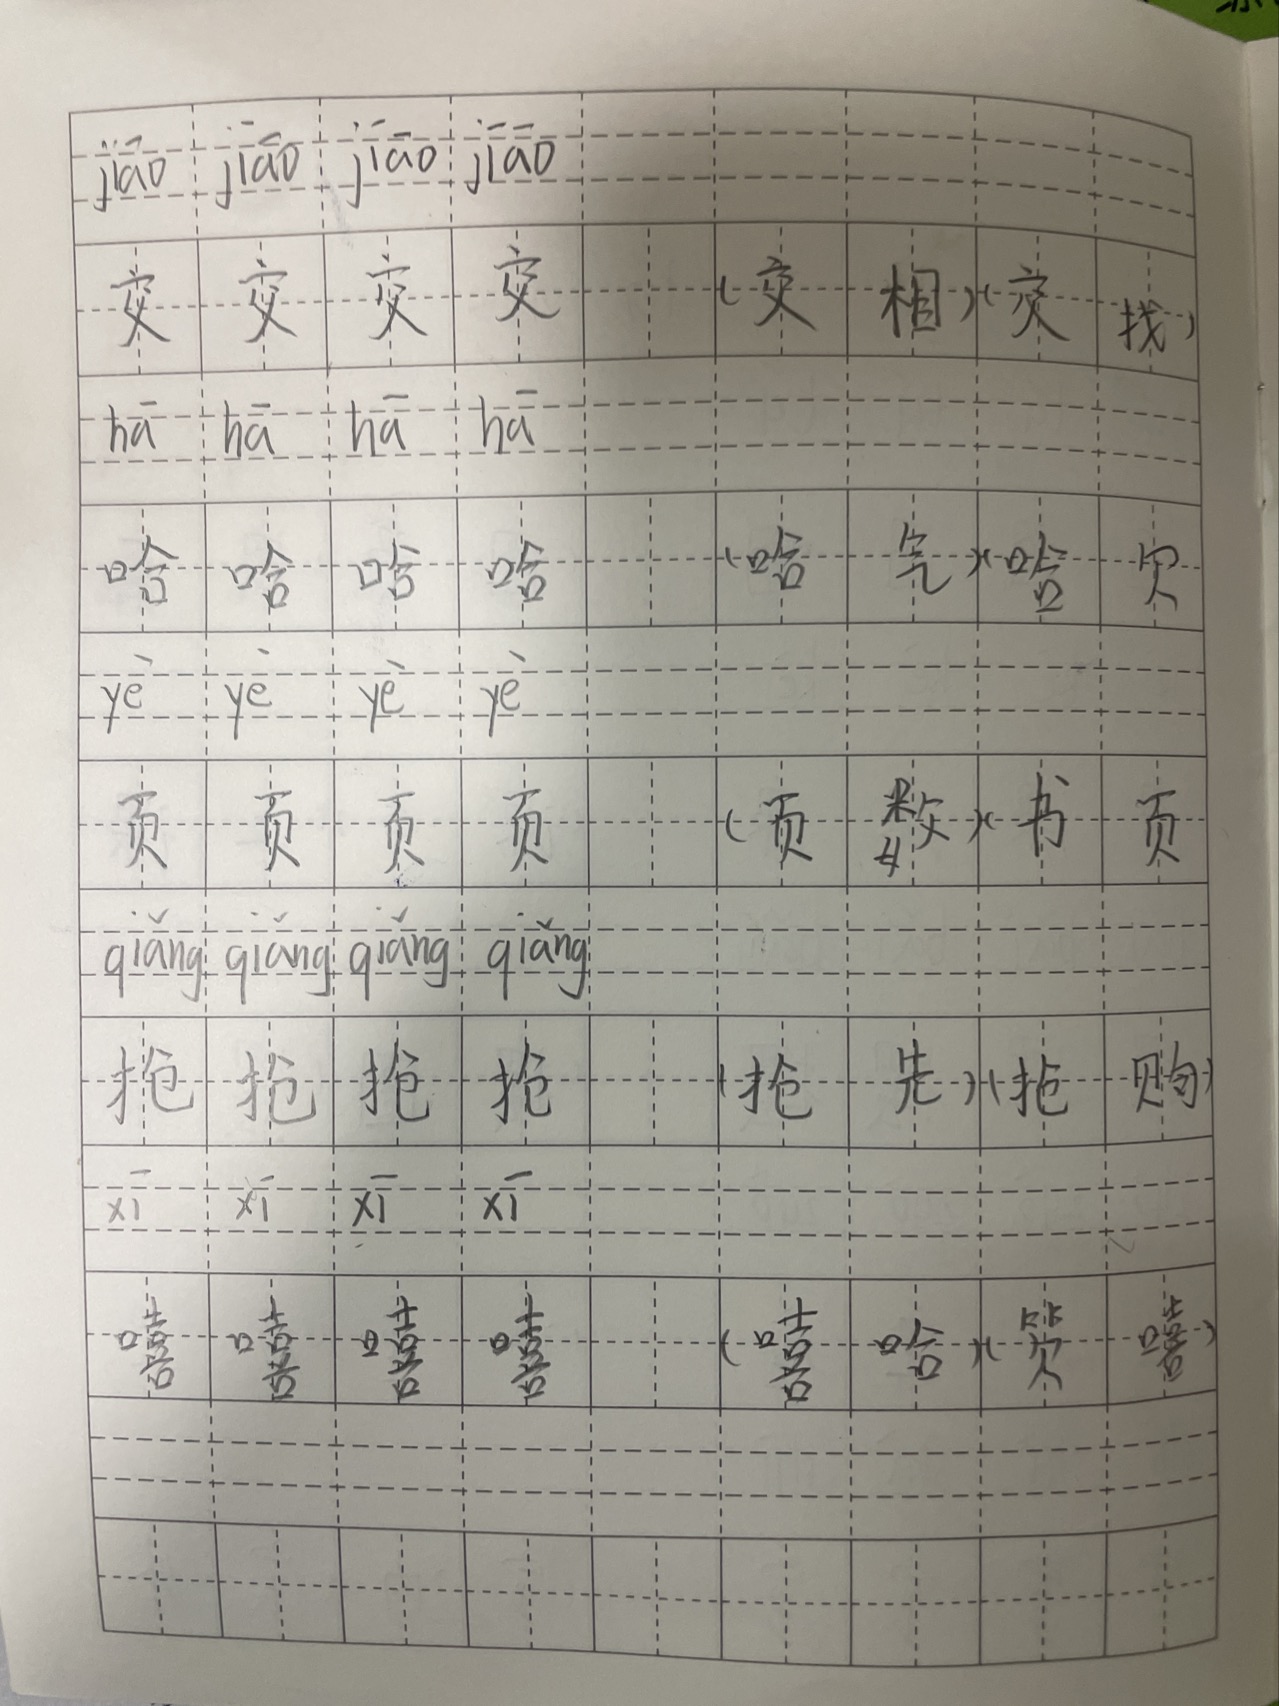 jiāo jiāo jiāo jiāo
交 交 交 交 (交 相)(交 找)
hā hā hā hā
哈 哈 哈 哈 (哈 气)(哈 欠
yè yè yè yè
页 页 页 页 (页 数)(书 页
qiǎng qiǎng qiǎng qiǎng
抢 抢 抢 抢 (抢 先)(抢 购)
xī xī xī xī
嘻 嘻 嘻 嘻 (嘻 哈)(笑 嘻)